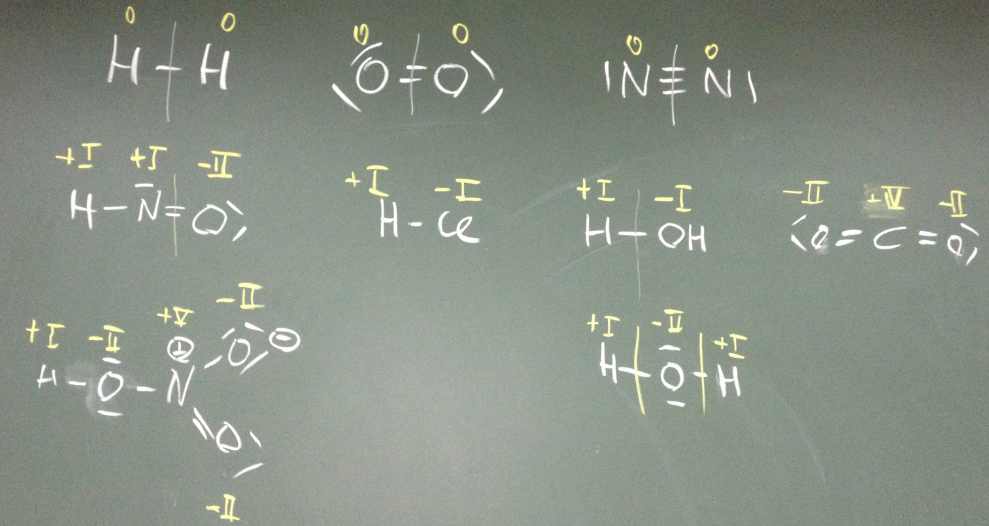 0 0 0 0 0 0
H-H O=O N≡N
+I +I -II +I -I +I -I -II +IV -II
H-N=O H-Cl H-OH O=C=O
+I -II +V -II +I -II +I
H-O-N ⊕ O ⊖ H-O-H
O
-II